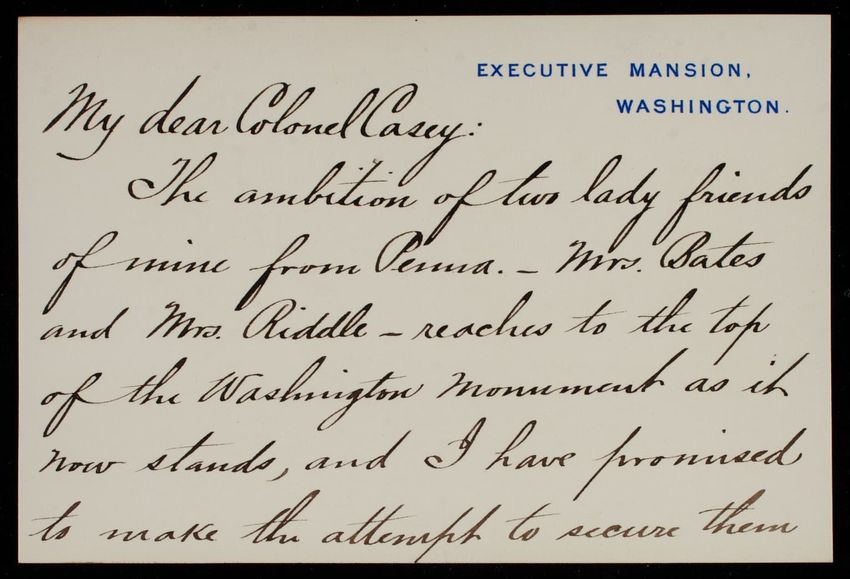 EXECUTIVE MANSION,
WASHINGTON.
My dear Colonel Casey:
The ambition of two lady friends
of mine from Penna. – Mrs. Bates
and Mrs. Riddle – reaches to the top
of the Washington Monument as it
now stands, and I have promised
to make the attempt to secure them